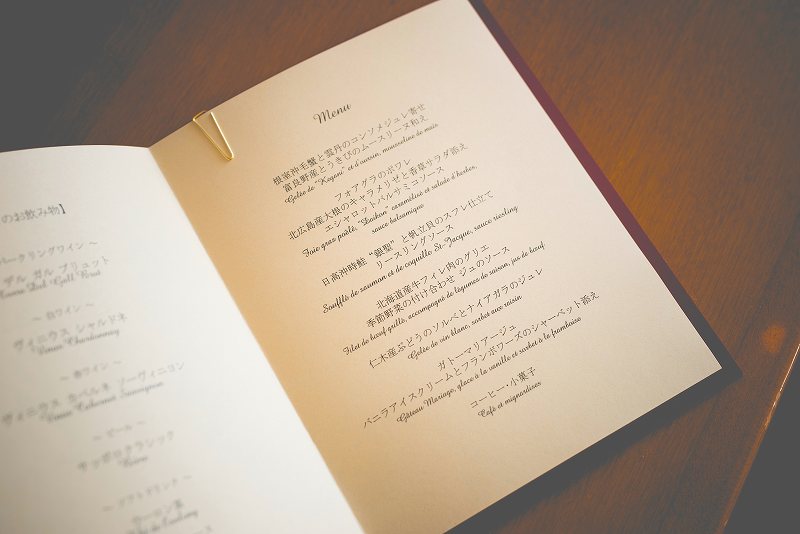 のお飲み物】
パークリングワイン ～
ザル ガル ブリュット
～ 白ワイン ～
ヴィニウス シャルドネ
Vinius Chardonnay
～ 赤ワイン ～
ヴィニウス カベルネ ソーヴィニヨン
Vinius Cabernet Sauvignon
～ ビール ～
サッポロクラシック
～ ソフトドリンク ～
ウーロン茶
Menu
根室沖毛蟹と雲丹のコンソメジュレ寄せ
富良野産とうきびのムースリーヌ和え
Gelée de "Kegani" et d'oursin, mousseline de maïs
フォアグラのポワレ
北広島産大根のキャラメリゼと香草サラダ添え
エシャロットバルサミコソース
Foie gras poêlé, "Daikon" caramélisé et salade d'herbes,
sauce balsamique
日高沖時鮭 "銀聖" と帆立貝のスフレ仕立て
リースリングソース
Soufflé de saumon et de coquille St-Jacque, sauce riesling
北海道産牛フィレ肉のグリエ
季節野菜の付け合わせ ジュのソース
Filet de bœuf grillé, accompagné de légumes de saison, jus de bœuf
仁木産ぶどうのソルベとナイアガラのジュレ
Gelée de vin blanc, sorbet aux raisin
ガトーマリアージュ
バニラアイスクリームとフランボワーズのシャーベット添え
Gâteau Mariage, glace à la vanille et sorbet à la framboise
コーヒー・小菓子
Café et mignardises